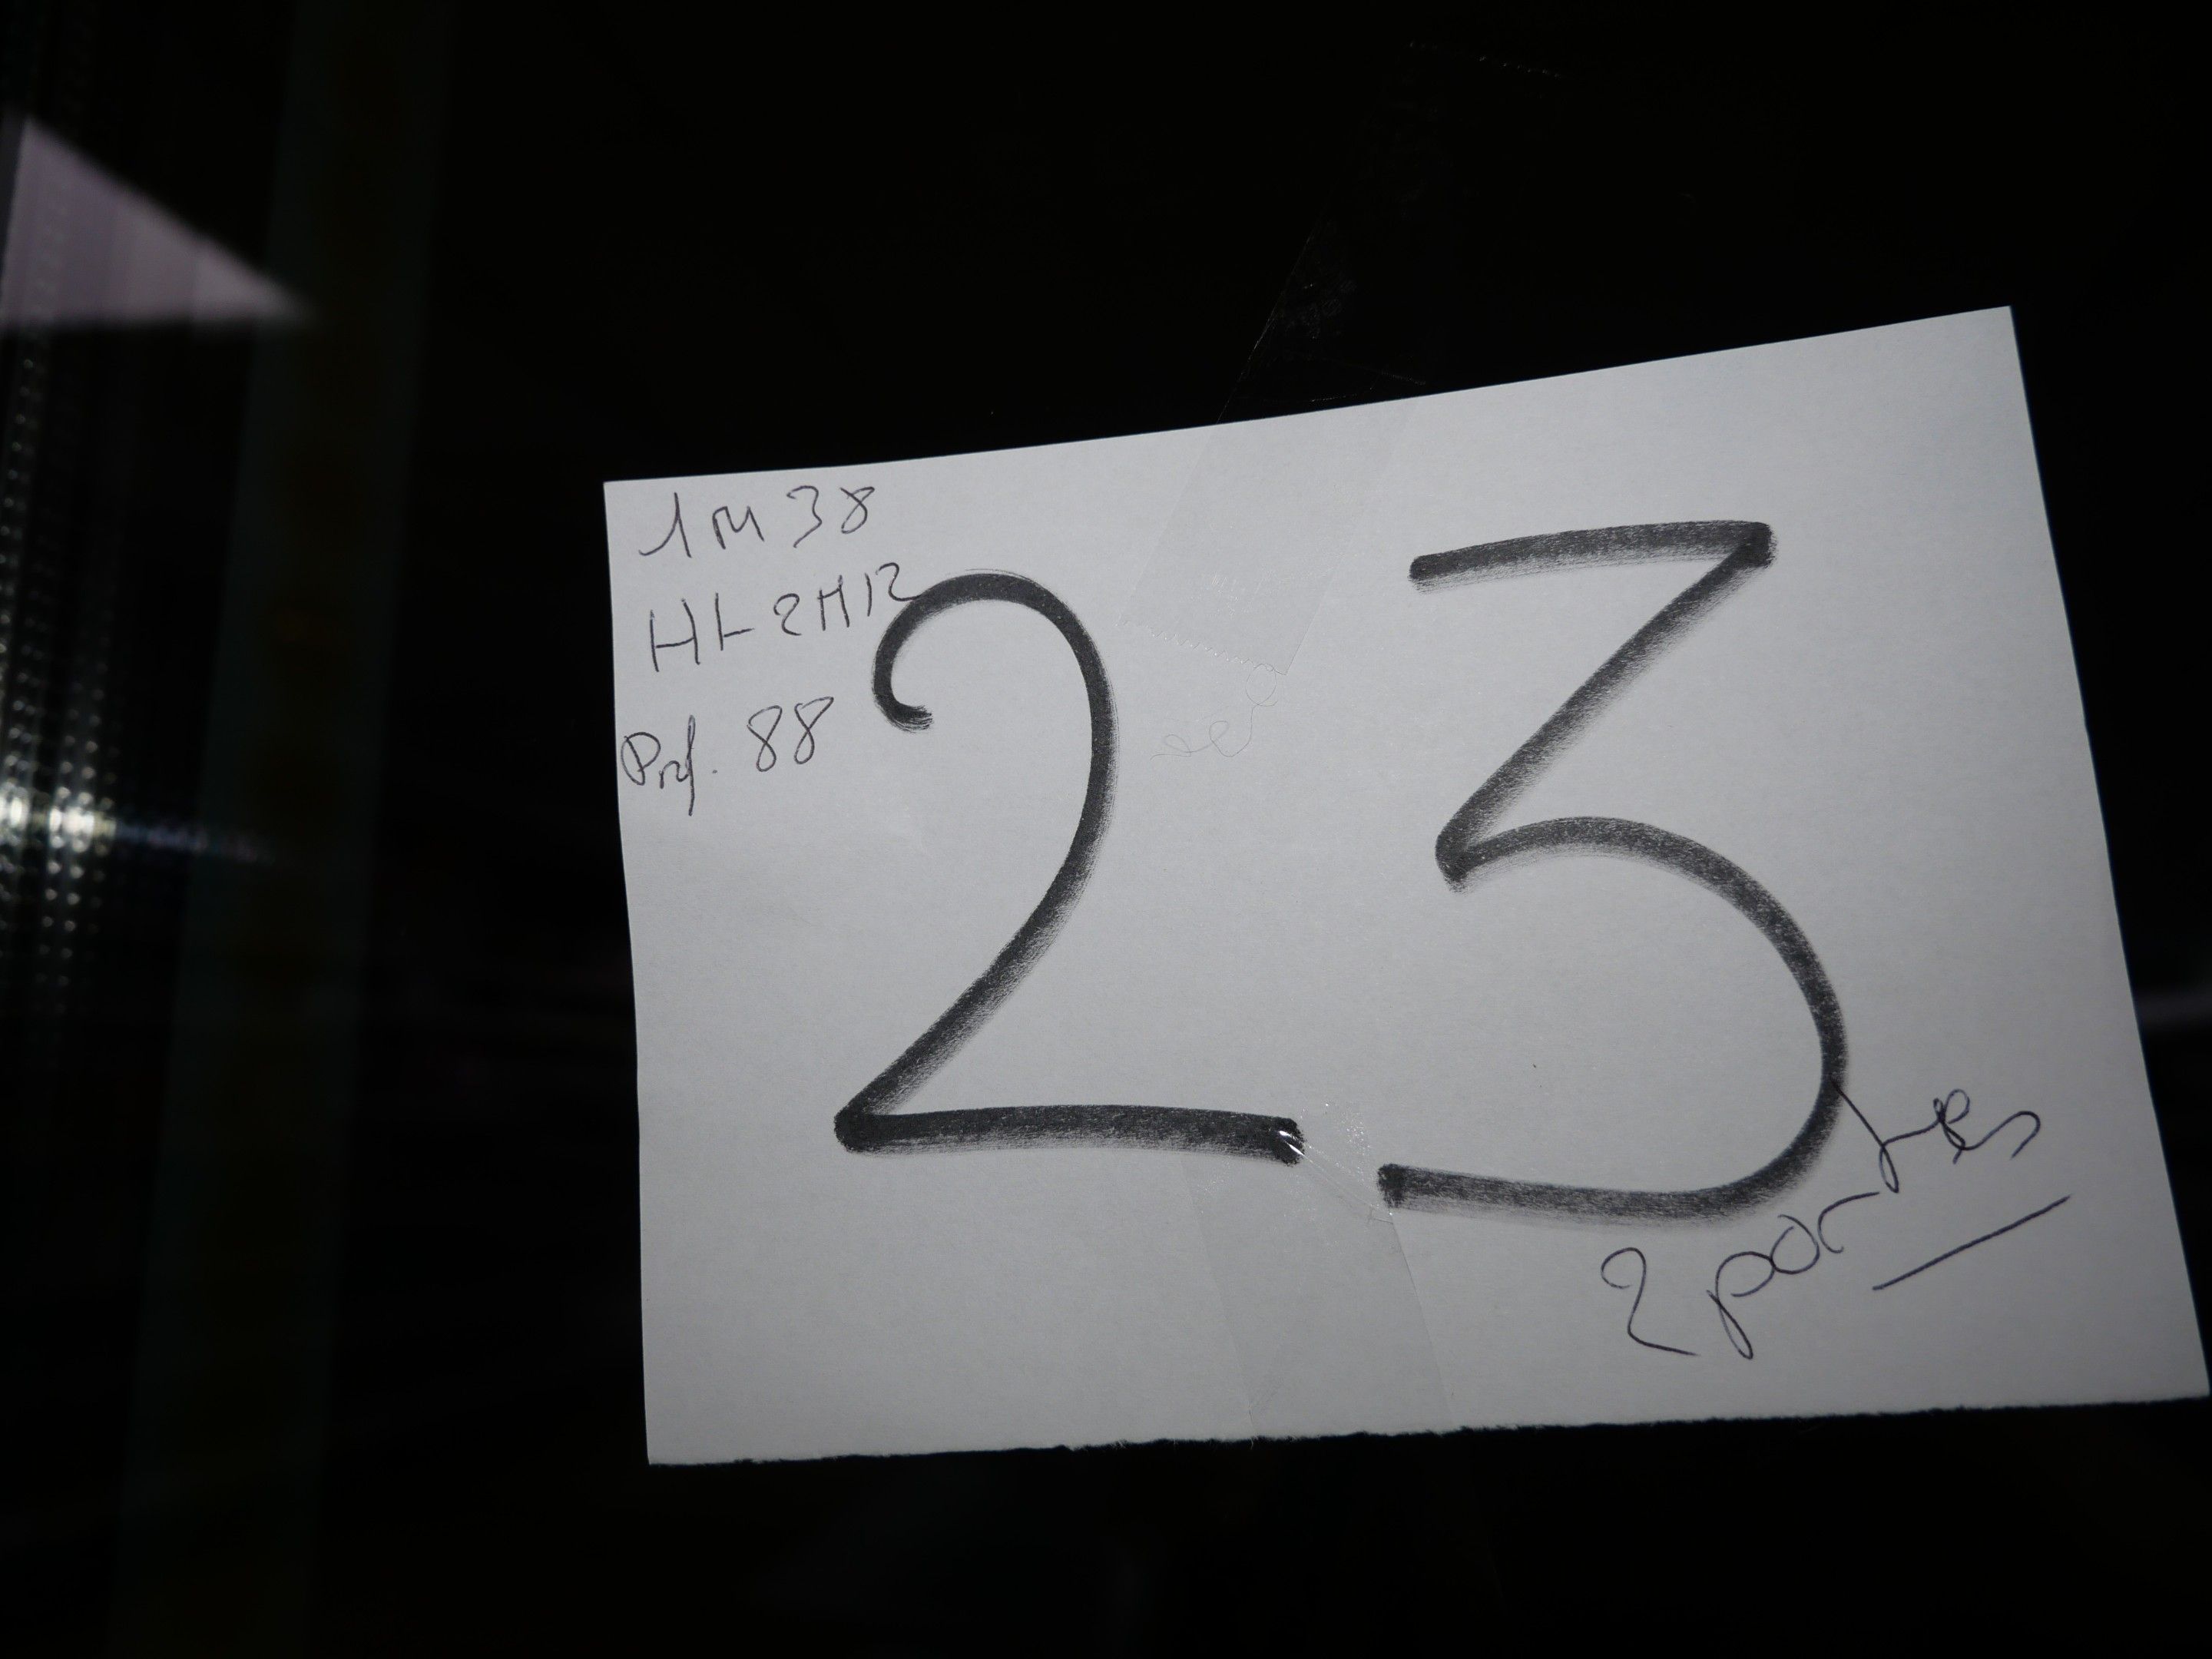 1M38
Ht 2M12
Prof. 88
23
2 portes